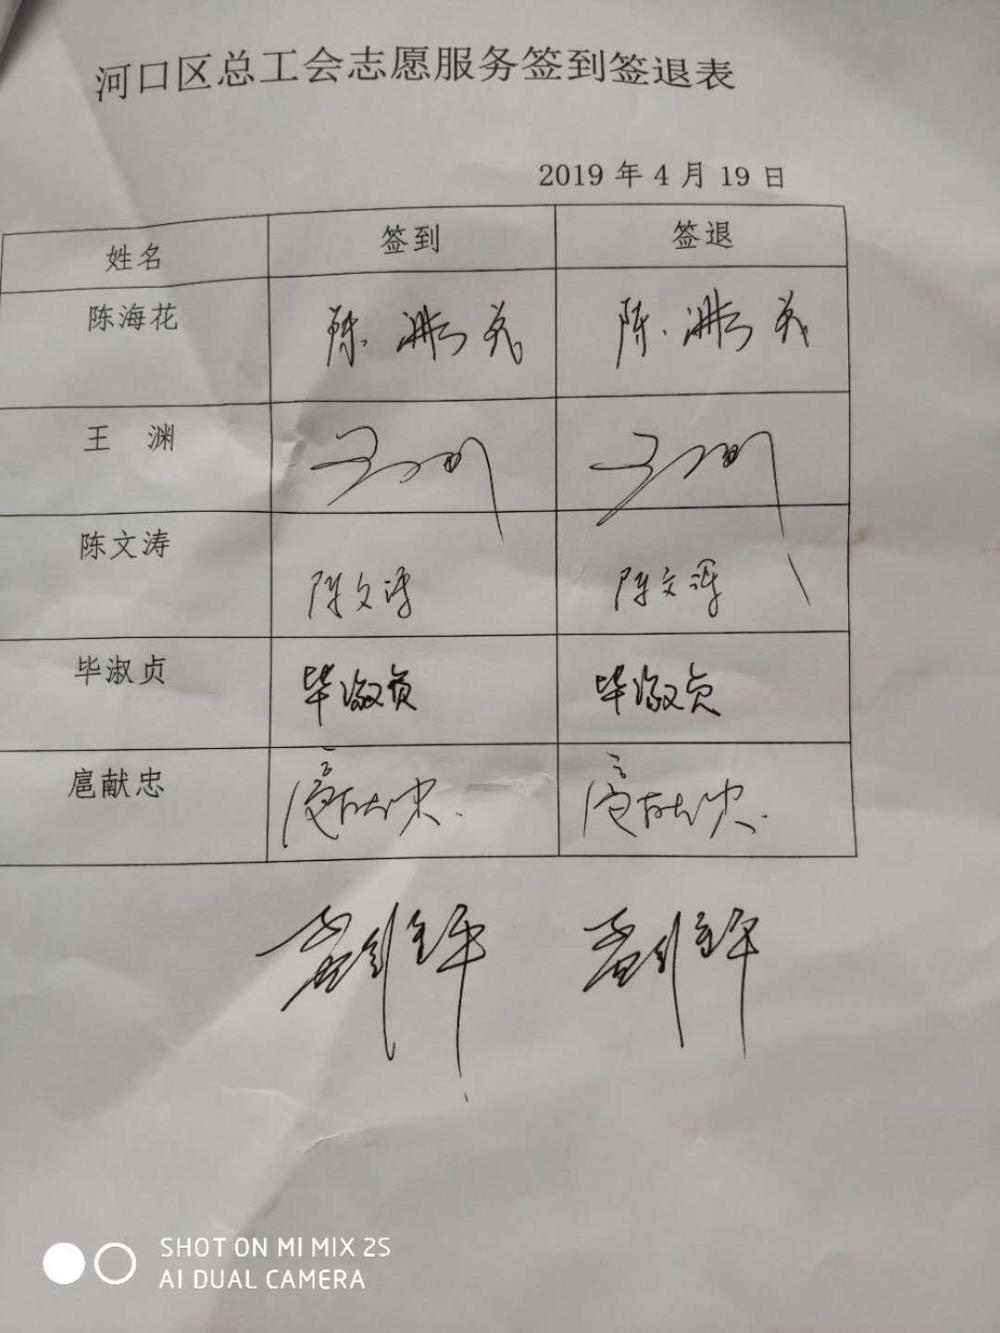 河口区总工会志愿服务签到签退表
2019 年 4 月 19 日
姓名 签到 签退
陈海花 陈海花 陈海花
王 渊 王渊 王渊
陈文涛 陈文涛 陈文涛
毕淑贞 毕淑贞 毕淑贞
扈献忠 扈献忠 扈献忠
SHOT ON MI MIX 2S
AI DUAL CAMERA